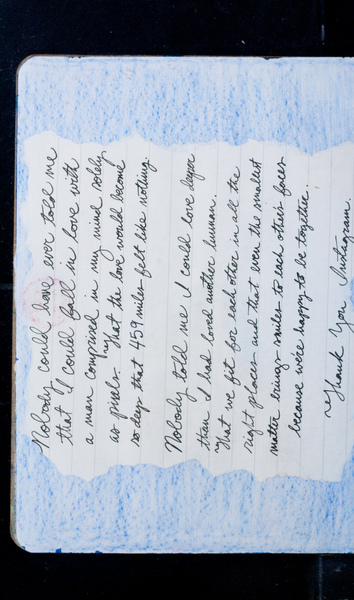 Nobody could have ever told me
that I could fall in love with
a man comprised in my mind solely
as pixels. That the love would become
so deep that 459 miles felt like nothing.
Nobody told me I could love deeper
than I had loved another human.
That we fit for each other in all the
right places and that even the smallest
matter brings smiles to each others faces
because we're happy to be together.
~Thank You Instagram.